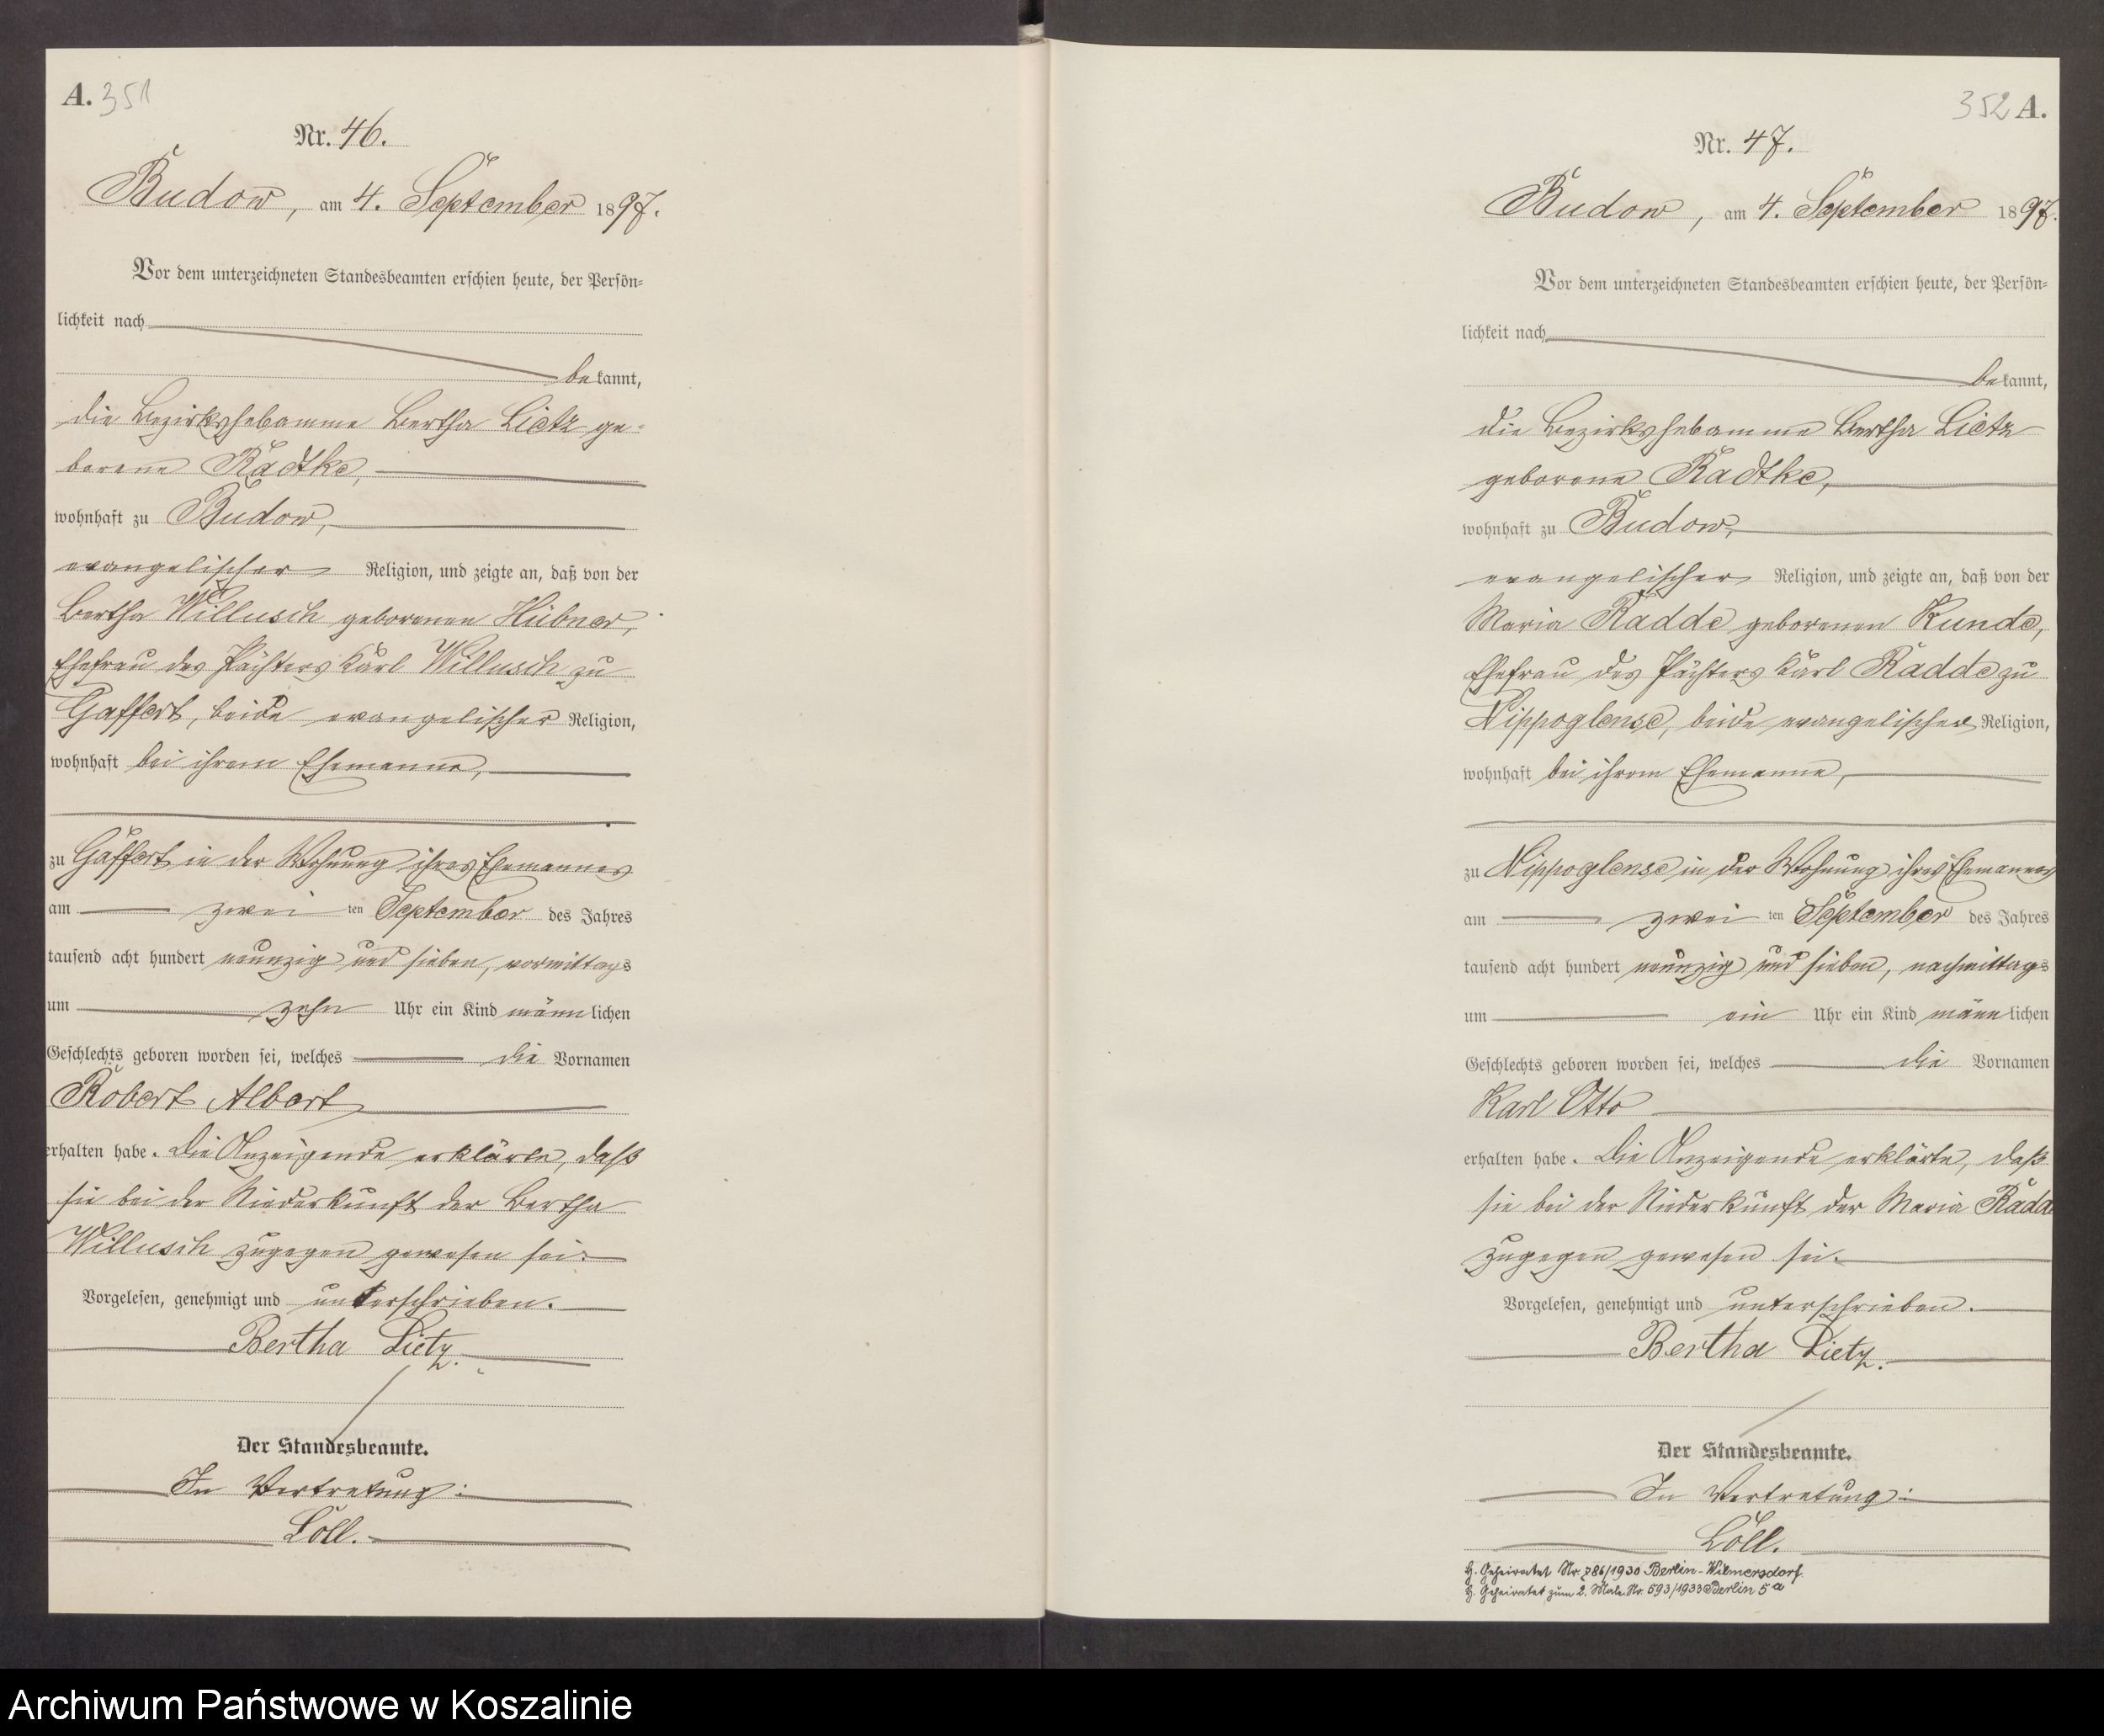 A. 351
Nr. 46.
Budow, am 4. September 1897.
Vor dem unterzeichneten Standesbeamten erschien heute, der Persön=
lichkeit nach
bekannt,
die Bezirkshebamme Bertha Lietz ge=
borene Radtke,
wohnhaft zu Budow,
evangelischer Religion, und zeigte an, daß von der
Bertha Willusch geborenen Hübner,
Ehefrau des Pächters Karl Willusch zu
Gaffert, beide evangelischer Religion,
wohnhaft bei ihrem Ehemanne,
zu Gaffert in der Wohnung ihres Ehemannes
am zwei ten September des Jahres
tausend acht hundert neunzig und sieben, vormittags
um zehn Uhr ein Kind männlichen
Geschlechts geboren worden sei, welches die Vornamen
Robert Albert
erhalten habe. Die Anzeigende erklärte, daß
sie bei der Niederkunft der Bertha
Willusch zugegen gewesen sei.
Vorgelesen, genehmigt und unterschrieben.
Bertha Lietz.
Der Standesbeamte.
In Vertretung:
Löll.
352 A.
Nr. 47.
Budow, am 4. September 1897.
Vor dem unterzeichneten Standesbeamten erschien heute, der Persön=
lichkeit nach
bekannt,
die Bezirkshebamme Bertha Lietz
geborene Radtke,
wohnhaft zu Budow,
evangelischer Religion, und zeigte an, daß von der
Maria Radde geborenen Kunde,
Ehefrau des Pächters Karl Radde zu
Nippoglense, beide evangelischer Religion,
wohnhaft bei ihrem Ehemanne,
zu Nippoglense in der Wohnung ihres Ehemannes
am zwei ten September des Jahres
tausend acht hundert neunzig und sieben, nachmittags
um ein Uhr ein Kind männlichen
Geschlechts geboren worden sei, welches die Vornamen
Karl Otto
erhalten habe. Die Anzeigende erklärte, daß
sie bei der Niederkunft der Maria Radde
zugegen gewesen sei.
Vorgelesen, genehmigt und unterschrieben.
Bertha Lietz.
Der Standesbeamte.
In Vertretung:
Löll.
H. Geheiratet Nr. 786/1930 Berlin-Wilmersdorf
H. Geheiratet zum 2. Male Nr. 593/1933 Berlin 5a
Archiwum Państwowe w Koszalinie